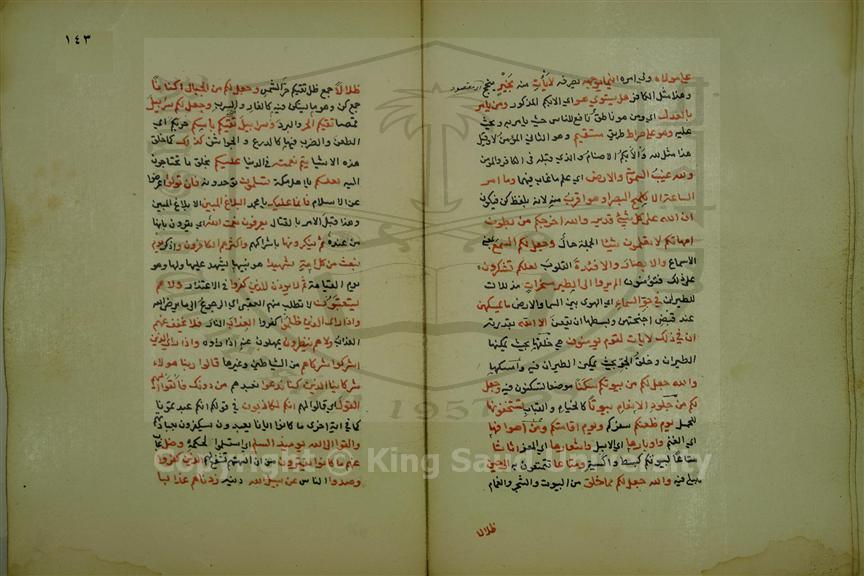 على مولاه وولي امره اينما يوجهه يصرفه لا يأت منه بخير بنجح
وهذا مثل الكافر هل يستوي هو اي الابكم المذكور ومن يأمر
بالعدل اي ومن هو ناطق نافع للناس حيث يأمر به ويحث
عليه وهو على صراط طريق مستقيم وهو الثاني المؤمن لا وقيل
هذا مثل لله والابكم للاصنام والذي قبله في الكافر والمؤمن
ولله غيب السموات والارض اي علم ما غاب فيهما وما امر
الساعة الا كلمح البصر او هو اقرب منه لانه بلفظ كن فيكون
ان الله على كل شيء قدير والله اخرجكم من بطون
امهاتكم لا تعلمون شيئا الجملة حال وجعل لكم السمع بمعنى
الاسماع والابصار والافئدة القلوب لعلكم تشكرون
على ذلك فتؤمنون الم يروا الى الطير مسخرات مذللات
للطيران في جو السماء اي الهوى بين السماء والارض ما يمسكهن
عند قبض اجنحتهن وبسطها ان يقعن الا الله بقدرته
ان في ذلك لايات لقوم يؤمنون هي خلقها بحيث يمكنها
الطيران وخلق الجو بحيث يمكن الطيران فيه وامسكها
والله جعل لكم من بيوتكم سكنا موضعا تسكنون فيه وجعل
لكم من جلود الانعام بيوتا كالخيام والقباب تستخفونها
للحمل يوم ظعنكم سفركم ويوم اقامتكم ومن اصوافها
اي الغنم واوبارها اي الابل واشعارها اي المعز اثاثا
متاعا لبيوتكم كبسط واكسية ومتاعا تتمتعون به الى حين
يبلى فيه والله جعل لكم مما خلق من البيوت والشجر والغمام
ظلالا
١٤٣
ظلالا جمع ظل تقيكم حر الشمس وجعل لكم من الجبال اكنانا
جمع كن وهو ما يستكن فيه كالغار والسرب وجعل لكم سرابيل
قمصا تقيكم الحر والبرد وسرابيل تقيكم بأسكم حربكم اي
الطعن والضرب فيها كالدرع والجواشن كذلك كما خلق
هذه الاشياء يتم نعمته في الدنيا عليكم بخلق ما تحتاجون
اليه لعلكم يا اهل مكة تسلمون توحدونه فان تولوا اعرضوا
عن الاسلام فانما عليك يا محمد البلاغ المبين الابلاغ المبين
وهذا قبل الامر بالقتال يعرفون نعمت الله اي يقرون بانها
من عنده ثم ينكرونها باشراكهم واكثرهم الكافرون واذكر يوم
نبعث من كل امة شهيدا هو نبيها يشهد عليها ولها وهو
يوم القيامة ثم لا يؤذن للذين كفروا في الاعتذار ولا هم
يستعتبون لا تطلب منهم العتبى اي الرجوع الى ما يرضي الله
واذا رأى الذين ظلموا كفروا العذاب النار فلا يخفف عنهم
العذاب ولا هم ينظرون يمهلون عنه اذا رأوه واذا رأى الذين
اشركوا شركاءهم من الشياطين وغيرها قالوا ربنا هؤلاء
شركاؤنا الذين كنا ندعوا نعبدهم من دونك فألقوا اليهم
القول اي قالوا لهم انكم لكاذبون في قولكم انكم عبدتمونا
كما في اية اخرى ما كانوا ايانا يعبدون سيكفرون بعبادتهم
والقوا الى الله يومئذ السلم اي استسلموا لحكمه وضل غاب
عنهم ما كانوا يفترون من ان الهتهم تشفع لهم الذين كفروا
وصدوا الناس عن سبيل الله دينه زدناهم عذابا
Copyright © King Saud University
1957